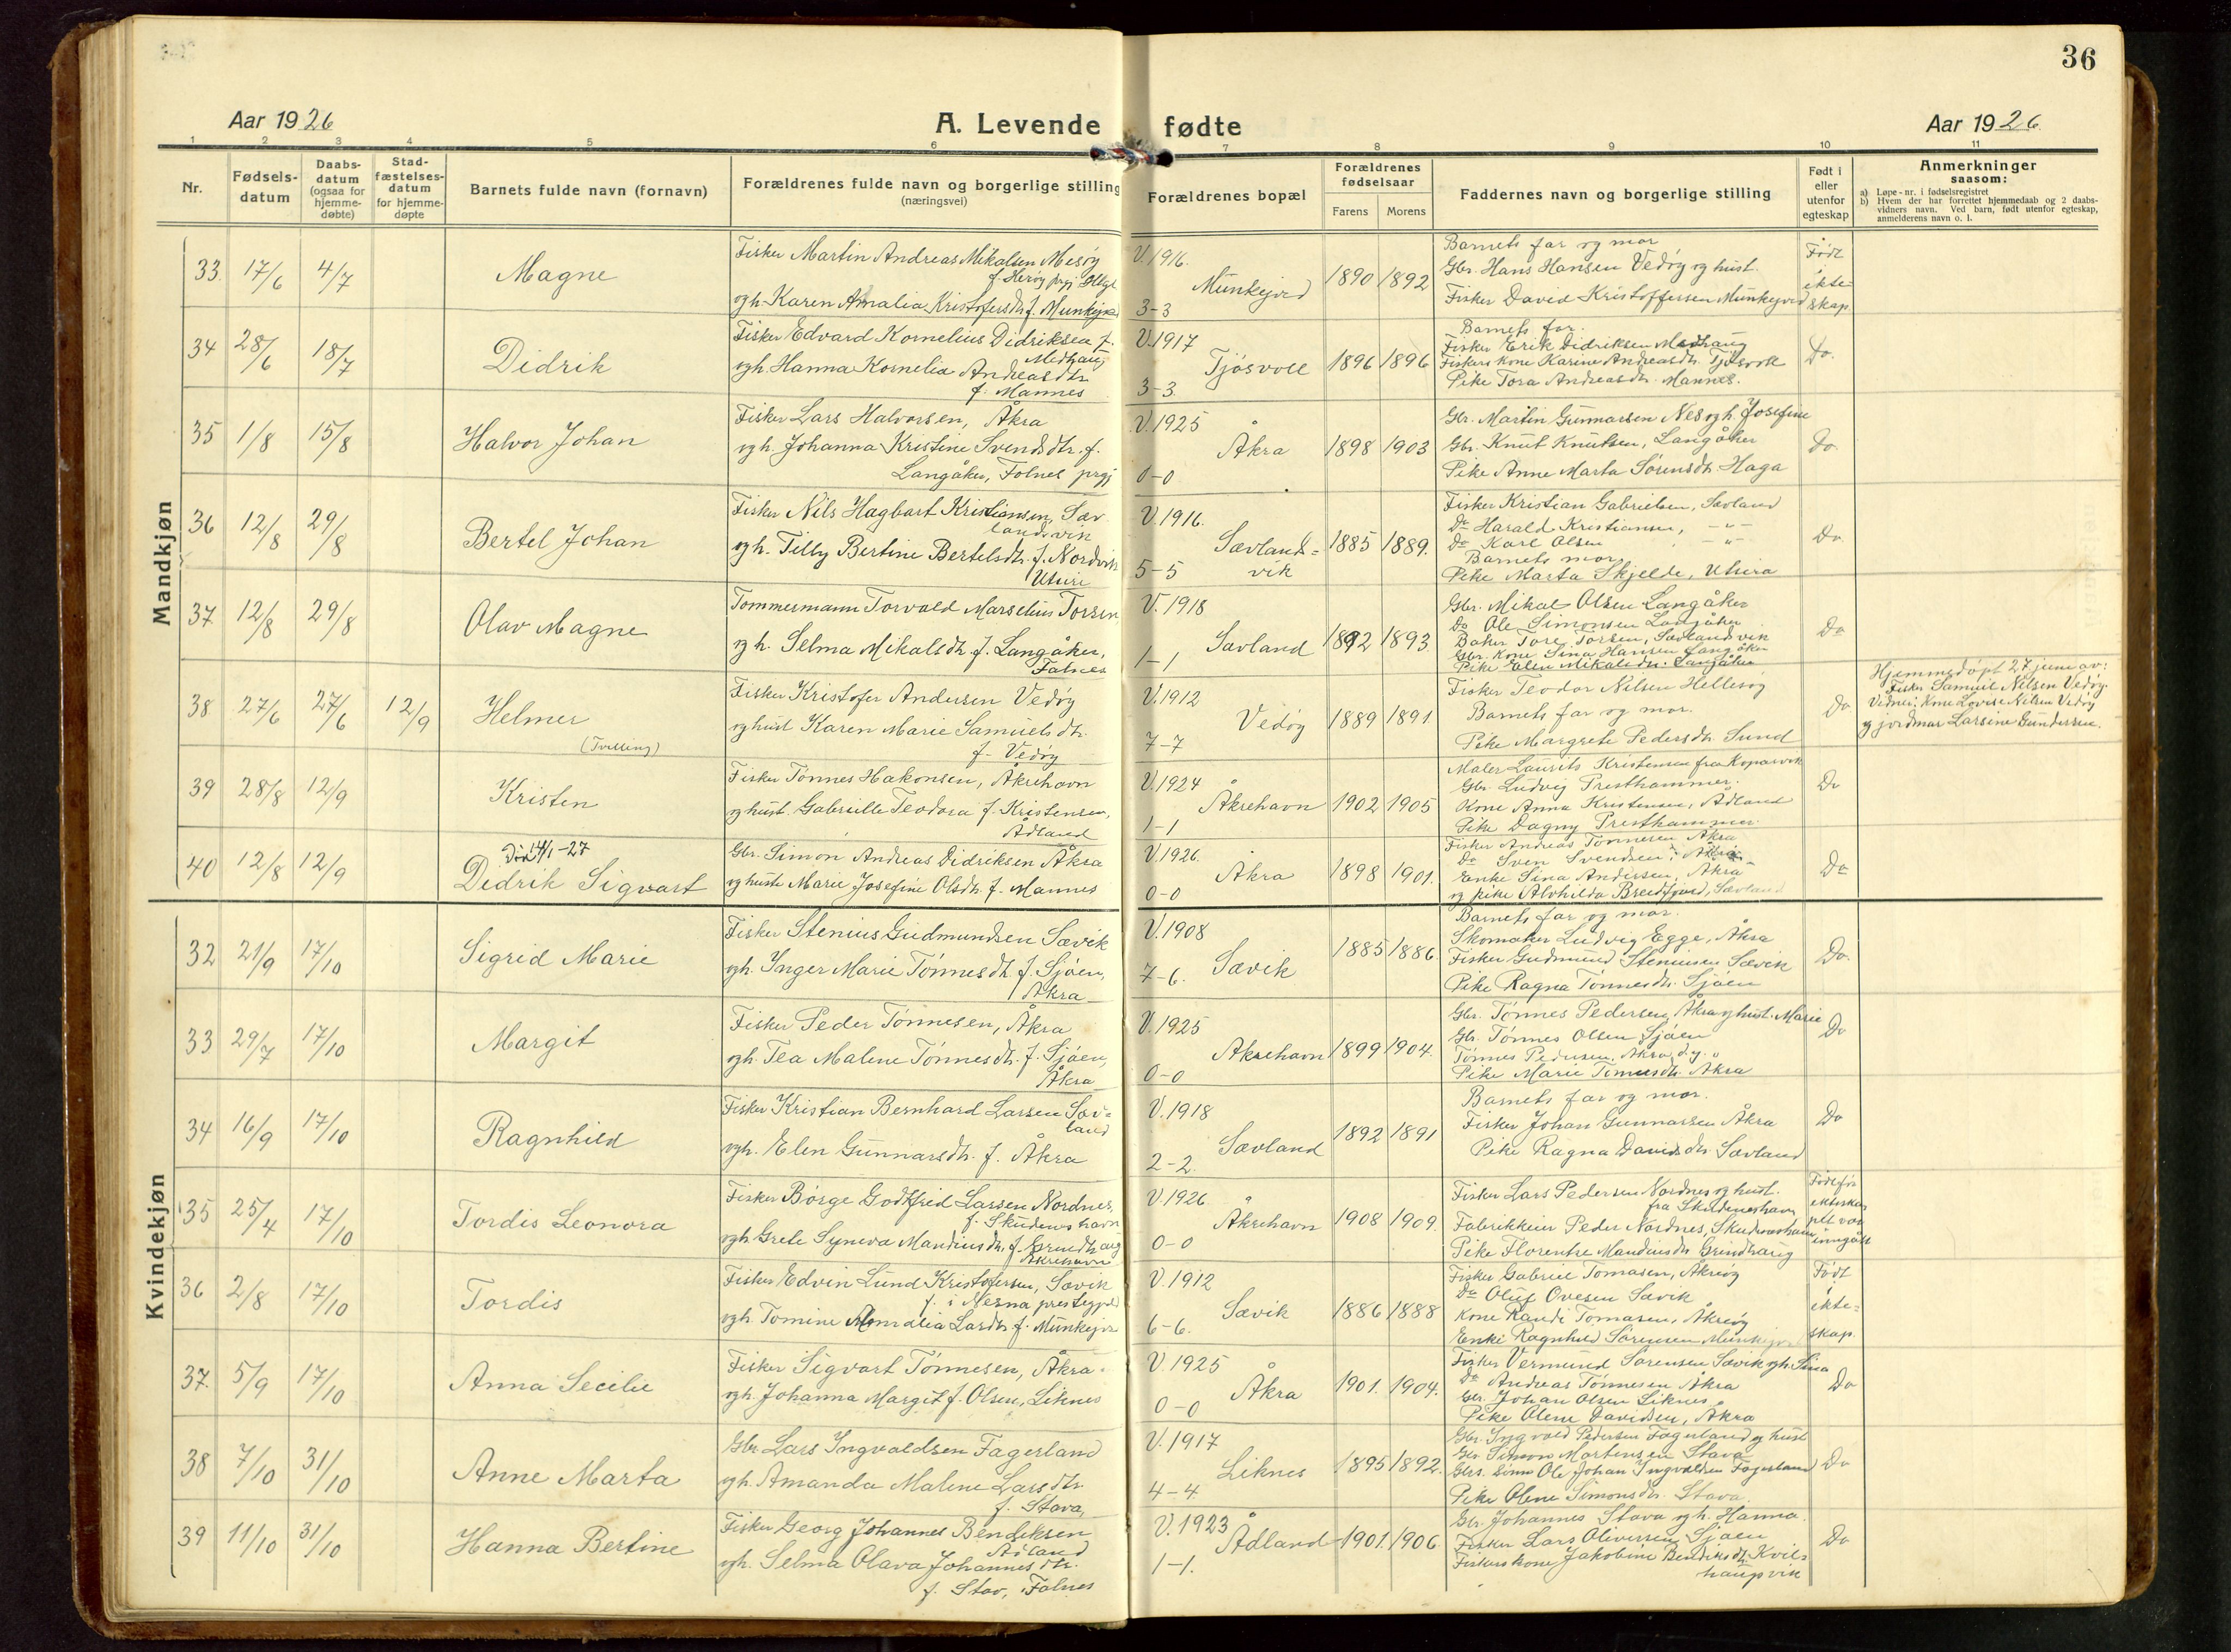 36
Aar 1926
A. Levende fødte
Aar 1926
1 2 3 4 5 6 7 8 9 10 11
Nr.
Fødsels-
datum
Daabs-
datum
(ogsaa for
hjemme-
døbte)
Stad-
fæstelses-
datum
for hjemme-
døpte
Barnets fulde navn (fornavn)
Forældrenes fulde navn og borgerlige stilling
(næringsvei)
Forældrenes bopæl
Forældrenes
fødselsaar
Farens Morens
Faddernes navn og borgerlige stilling
Født i
eller
utenfor
egteskap
Anmerkninger
saasom:
a) Løpe-nr. i fødselsregistret
b) Hvem der har forrettet hjemmedaab og 2 daabs-
vidners navn. Ved barn, født utenfor egteskap,
anmelderens navn o. l.
Mandkjøn
33 17/6 4/7
Magne
Fisker Martin Andreas Mikalsen Mesøy
f. Herøy prgj
ogh. Karen Amalia Kristofersdtr f. Munkejord
V. 1916.
Munkejord
3-3
1890 1892
Barnets far og mor
Gbr. Hans Hansen Vedøy og hust.
Fisker David Kristoffersen Munkejord
Født
i ekte-
skap
34 28/6 18/7
Didrik
Fisker Edvard Kornelius Didriksen f.
Medhaug
ogh. Hanna Kornelia Andreasdtr
f. Mannes
V. 1917
Tjøsvoll
3-3.
1896 1896
Barnets far.
Fisker Erik Didriksen Medhaug
Fiskers kone Karine Andreasdtr. Tjøsvoll
Pike Tora Andreasdtr. Mannes.
Do.
35 1/8 15/8
Halvor Johan
Fisker Lars Halvorsen, Åkra
ogh. Johanna Kristine Svendsdtr. f.
Langåker, Falnes prgj
V. 1925
Åkra
0-0
1898 1903
Gbr. Martin Gunnarsen Nes ogh. Josefine
Gbr. Knut Knutsen, Langåker
Pike Anne Marta Sørensdtr Haga
Do.
36 12/8 29/8
Bertel Johan
Fisker Nils Hagbart Kristiansen, Sæv-
landsvik
ogh. Tilly Bertine Bertelsdtr. f. Nordvik
Utsire
V. 1916.
Sævlands-
vik
5-5
1885 1889.
Fisker Kristian Gabrielsen, Sævland
Do Harald Kristiansen, -"-
Do Karl Olsen -"-
Barnets mor
Pike Marta Skjelde, Utsira
Do.
37 12/8 29/8
Olav Magne
Tømmermann Torvald Marselius Torsen
og h. Selma Mikalsdtr. f. Langåker,
Falnes
V. 1918
Sævland
1-1
1892 1893.
Gbr. Mikal Olsen Langåker
Do Ole Simonsen Langåker
Baker Tore Torsen, Sævlandsvik
Gbr. kone Sina Hansen Langåker
Pike Elen Mikalsdtr. Langåker
Do
38 27/6 27/6 12/9
Helmer
(Tvilling)
Fisker Kristofer Andersen Vedøy
og hust Karen Marie Samuelsdtr.
f. Vedøy
V. 1912
Vedøy
7-7
1889 1891
Fisker Teodor Nilsen Hellesøy
Barnets far og mor.
Pike Margrete Pedersdtr. Sund
Do
Hjemmedøpt 27 juni av:
Fisker Samuel Nilsen Vedøy.
Vidner: Kone Lovise Nilsen Vedøy
og jordmor Larsine Gundersen.
39 28/8 12/9
Kristen
Fisker Tønnes Hakonsen, Åkrehavn
og hust. Gabrielle Teodora f. Kristensen,
Ådland
V. 1924
Åkrehavn
1-1
1902 1905
Maler Laurits Kristensen fra Kopervik
Gbr. Ludvig Presthammer.
Kone Anna Kristensen, Ådland
Pike Dagny Presthammer.
Do
40 12/8 12/9
Død 14/1-27
Didrik Sigvart
Gbr. Simon Andreas Didriksen Åkra
og hustr Marie Josefine Olsdtr. f. Mannes
V. 1926.
Åkra
0-0
1898 1901.
Fisker Andreas Tønnesen Åkra
Do Sven Svendsen, Åkra
Enke Sina Andersen, Åkra
og pike Alvhilda Breidfjord, Sævland
Do
Kvindekjøn
32 21/9 17/10
Sigrid Marie
Fisker Stenius Gudmundsen Sævik
ogh. Inger Marie Tønnesdtr. f. Sjøen,
Åkra
V. 1908
Sævik
7-6.
1885 1886
Barnets far og mor.
Skomaker Ludvig Egge, Åkra
Fisker Gudmund Steniusen Sævik
Pike Ragna Tønnesdtr. Sjøen
Do.
33 29/7 17/10
Margit
Fisker Peder Tønnesen, Åkra
ogh. Tea Malene Tønnesdtr. f. Sjøen,
Åkra
V. 1925
Åkrehavn
0-0
1899 1904.
Gbr. Tønnes Pedersen Åkra og hust. Marie
Gbr. Tønnes Olsen Sjøen
Tønnes Pedersen, Åkra, d.y.
Pike Marie Tønnesdtr. Åkra
Do
34 16/9 17/10
Ragnhild
Fisker Kristian Bernhard Larsen Sæv-
land
ogh. Elen Gunnarsdtr. f. Åkra
V. 1918
Sævland
2-2.
1892 1891
Barnets far og mor.
Fisker Johan Gunnarsen Åkra
Pike Ragna Davidsdtr. Sævland
Do
35 25/4 17/10
Tordis Leonora
Fisker Børge Godtfred Larsen Nordnes,
f. Skudeneshavn
ogh. Grete Syneva Mandiusdtr. f. Grindhaug
Åkrehavn
V. 1926
Åkrehavn
0-0
1908 1909.
Fisker Lars Pedersen Nordnes og hust.
fra Skudeneshavn
Fabrikkeier Peder Nordnes, Skudeneshavn
Pike Florentse Mandiusdtr Grindhaug
Født før
ekteska-
pet var
inngått
36 2/8 17/10
Tordis
Fisker Edvin Lund Kristofersen, Sævik
f. i Nesna prestegjeld
ogh. Tomine Amalia Larsdtr. f. Munkejor
V. 1912
Sævik
6-6.
1886 1888
Fisker Gabriel Tomasen, Åkrøy
Do Oluf Ovesen Sævik
Kone Randi Tomasen, Åkrøy
Enke Ragnhild Sørensen Munkejor
Født
i ekte-
skap
37. 5/9 17/10
Anna Secilie
Fisker Sigvart Tønnesen, Åkra
ogh. Johanna Margit f. Olsen, Liknes
V. 1925
Åkra
0-0
1901. 1904.
Fisker Vermund Sørensen Sævik ogh. Sina
Do Andreas Tønnesen Åkra
Gbr. Johan Olsen Liknes
Pike Olene Davidsen, Åkra
Do
38 7/10 31/10
Anne Marta
Gbr. Lars Ingvaldsen Fagerland
ogh. Amanda Malene Larsdtr.
f. Stava,
V. 1917
Liknes
4-4
1895 1892.
Gbr. Ingvald Pedersen Fagerland og hust
Gbr Simon Mortensen Stava
Gbrs. sønn Ole Johan Ingvaldsen Fagerland
Pike Olene Simonsdtr. Stava.
Do
39 11/10 31/10
Hanna Bertine
Fisker Georg Johannes Bendiksen
Ådland
ogh. Selma Olava Johannesdtr.
f. Stav, Falnes
V. 1923
Ådland
1-1.
1901. 1906
Gbr. Johannes Stava ogh. Hanna.
Fisker Lars Oliversen Sjøen
Fiskers kone Jakobine Bendiksdtr. Kvils-
haugvik
Do